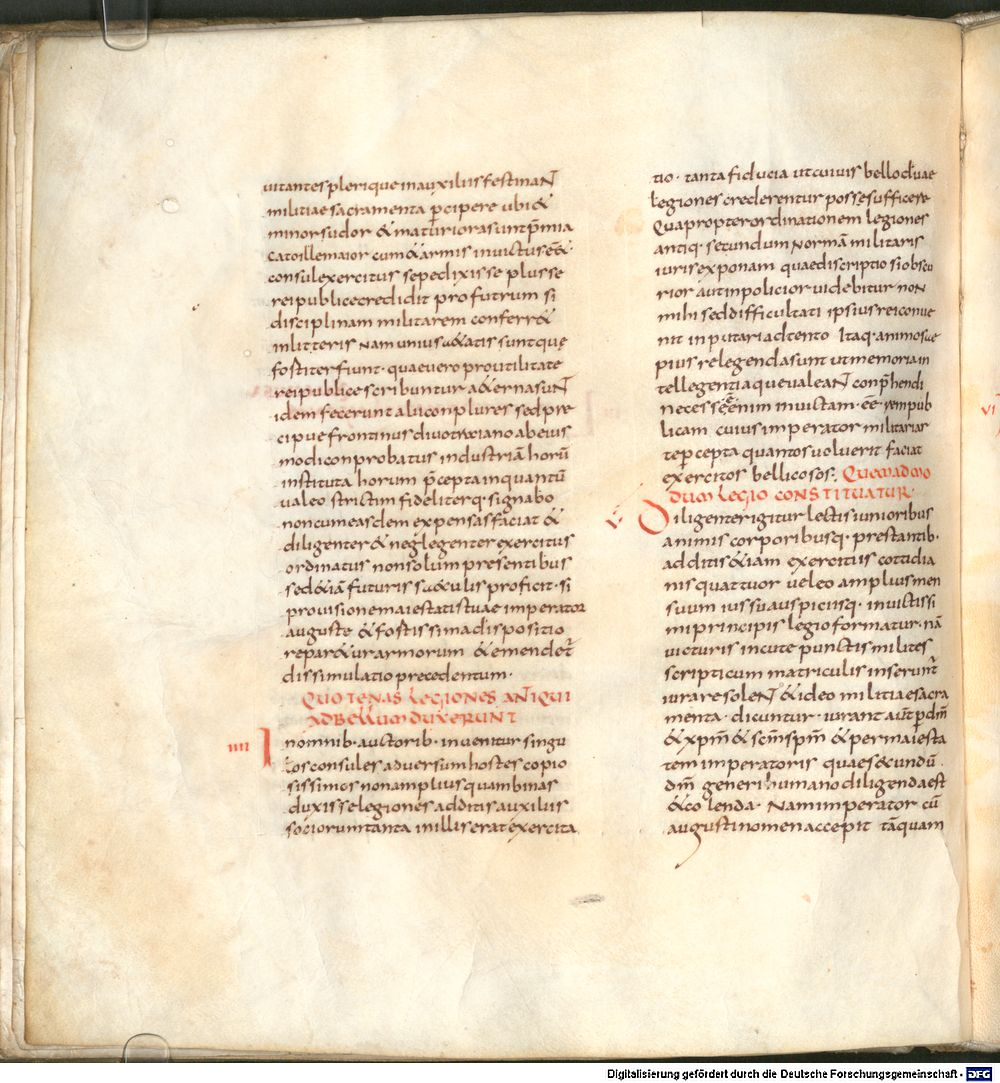 uitantes plerique in auxiliis festinant
militiae sacramenta p̄cipere ubi &
minor sudor & maturiora sunt p̄mia
Cato ille maior cum & armis inuictus ēē &
consul exercitus sepe dixisse plus se
rei publice credidit profutrum si
disciplinam militarem conferr&
in litteris Nam unius ætatis sunt quę
fostiter fiunt · quae uero pro utilitate
rei publice scribuntur aeterna sunt
idem fecerunt alii conplures sed pre
cipue frontinus diuo traiano ab eius
modi conprobatus industriā horū
instituta horum p̄cepta inquantū
ualeo strictim fideliterq· signabo
non cum easdem expensas faciat &
diligenter & neglegenter exercitus
ordinatus non solum presentibus
sed &iā futuris sæculis proficit · si
prouisione maiestatis tuae imperator
auguste & fostissima dispositio
repar&ur armorum & emendet̄
dissimulatio precedentum ·
QUOTENAS LEGIONES ANTIQUI
AD BELLUM DUXERUNT
IIII In omnib· auctorib· inuenitur singu
los consules aduersum hostes copio
sissimos non amplius quam binas
duxisse legiones additis auxiliis
sociorum tanta in illis erat exercita
tio · tanta fiducia ut cuiuis bello duae
legiones crederentur posse sufficere
Quapropter ordinationem legiones
antiq· secundum Normā militaris
iuris exponam quae discriptio si obscu
rior aut inpolicior uidebitur non
mihi sed difficultati ipsius rei conue
nit inputari adtento Itaq· animo sae
pius relegenda sunt ut memoria in
tellegentia que ualeant conp̄hendi
necesse ē enim inuictam · ēē rempub
licam cuius imperator militariar
te p̄cepta quantos uoluerit faciat
exercitos bellicosos. Quemadmo
dum legio constituatur
V Diligenter igitur lectis iunioribus
animis corporibusq· prestantib·
additis &iam exercitiis cottidia
nis quattuor uel eo amplius men
suum iussu auspiciisq· inuictissi
mi principis legio formatur · nā
uicturis in cute punctis milites
scripti cum matriculis inserunt̄
iurare solent & ideo militiae sacra
menta · dicuntur · iurant aut̄ p̄ dm̄
& xp̄m & scm̄ sp̄m & per maiesta
tem imperatoris quae secundū ·
dm̄ generi humano diligenda est
& colenda · Nam imperator cū
augusti nomen accepit tāquam
VI
Digitalisierung gefördert durch die Deutsche Forschungsgemeinschaft - DFG